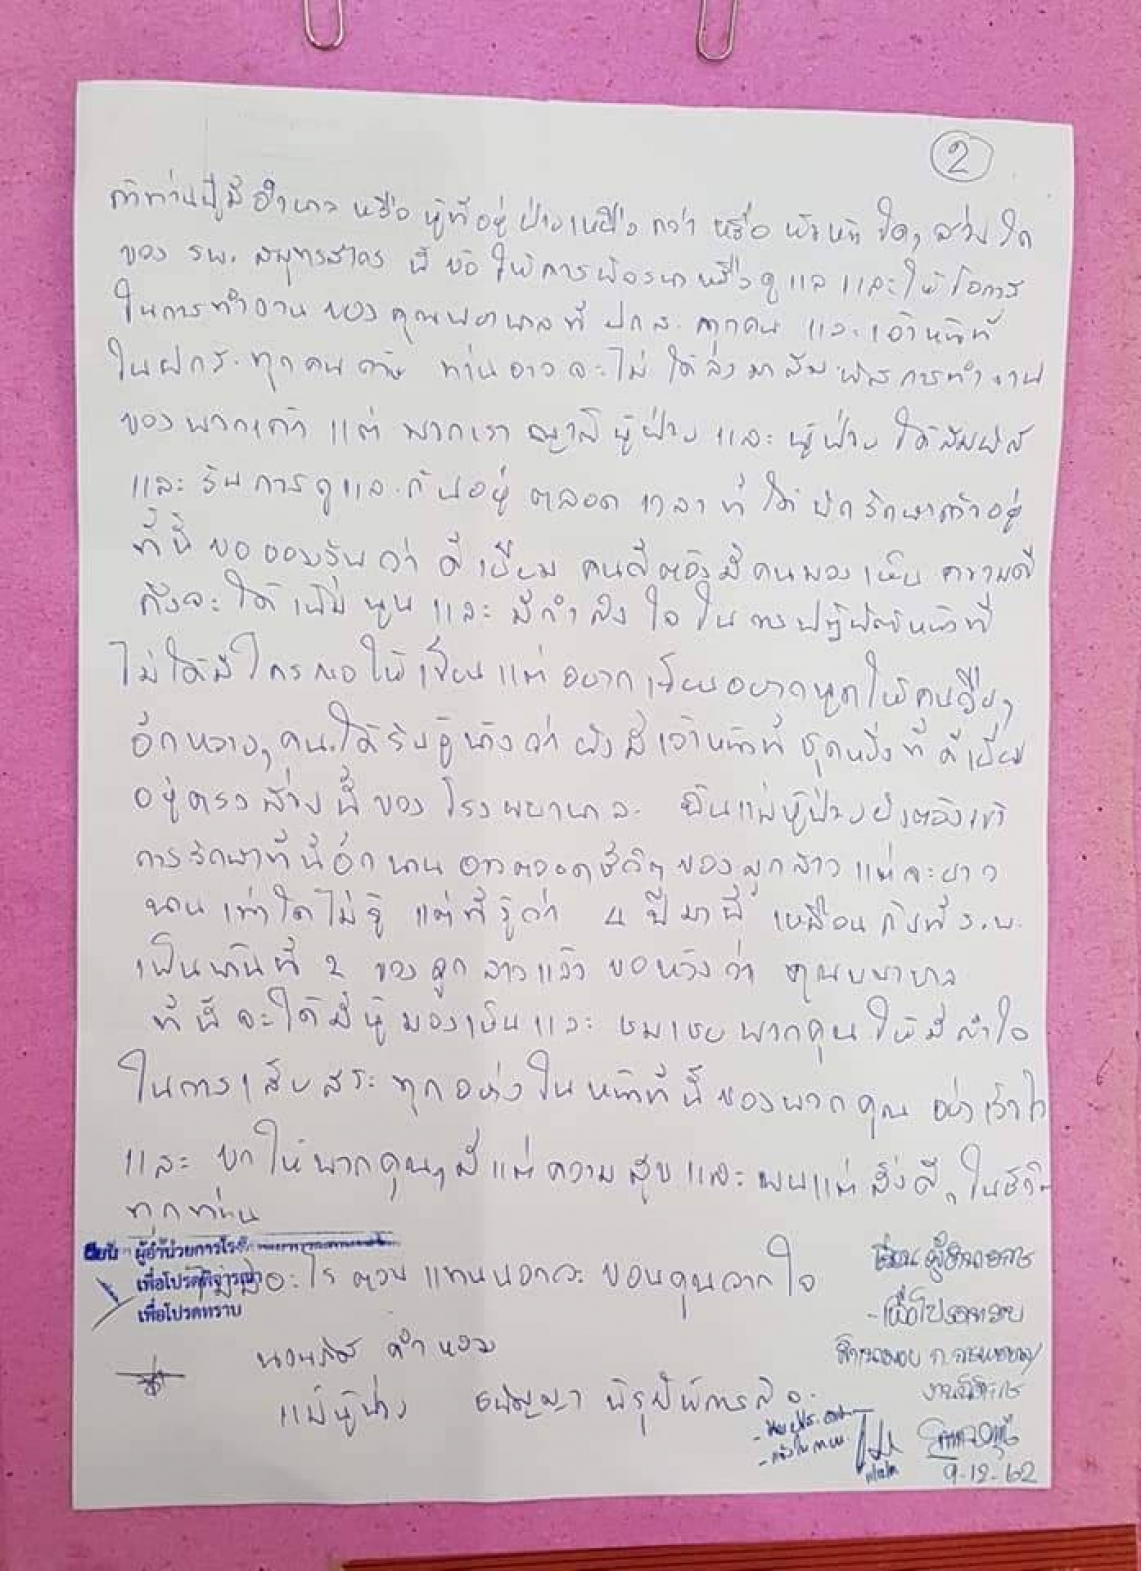 2
ถ้าท่านผู้มีอำนาจ หรือ ผู้ที่อยู่ฝ่ายเหนือกว่า หรือ หัวหน้าใดๆ ส่วนใด
ของ รพ. สมุทรสาคร นี้ ขอให้การพิจารณาเรื่องดูแล และให้โอกาส
ในการทำงาน ของคุณพยาบาลที่ ปกส. ทุกคน และเจ้าหน้าที่
ใน ปกส. ทุกคนด้วย ท่านอาจจะไม่ได้ลงมาสัมผัสการทำงาน
ของพวกเค้า แต่ พวกเรา ญาติผู้ป่วย และ ผู้ป่วย ได้สัมผัส
และ รับการดูแลกันอยู่ ตลอดเวลาที่ได้ พักรักษาตัวอยู่
ที่นี้ ขอยอมรับว่า ดีเยี่ยม คนดีต้องมีคนมองเห็น ความดี
ถึงจะได้เพิ่มพูน และ มีกำลังใจในการปฏิบัติหน้าที่
ไม่ได้มีใครขอให้เขียนแต่อยากเขียนอยากพูดให้คนอื่นๆ
อีกหลายๆคนได้รับรู้บ้างว่า ยังมีเจ้าหน้าที่ ชุดหนึ่งที่ดีเยี่ยม
อยู่ตรงส่วนนี้ของ โรงพยาบาล ฉันแม่ผู้ป่วยยังต้องเข้า
การรักษาที่นี้อีกนาน อาจตลอดชีวิตของลูกสาว แต่จะยาว
นานเท่าใดไม่รู้ แต่ที่รู้ว่า 4 ปีมานี้ เหมือนกับที่ ร.พ.
เป็นบ้านที่ 2 ของลูกสาวแล้ว ขอหวังว่า คุณพยาบาล
ที่นี้จะได้มีผู้มองเห็นและ ชมเชยพวกคุณให้มีกำลังใจ
ในการเสียสระทุกอย่างในหน้าที่นี้ของพวกคุณ อย่างเต็มใจ
และ ขอให้พวกคุณๆมีแต่ความสุขและพบแต่สิ่งดีๆในชีวิต
ทุกท่าน
เรียน ผู้อำนวยการโรงพยาบาล
เพื่อโปรดพิจารณา
เพื่อโปรดทราบ
ไม่มีอะไรตอบแทนนอกจะขอบคุณจากใจ
แม่ผู้ป่วย
เรียน ผู้อำนวยการ
- เพื่อโปรดทราบ
9-12-62